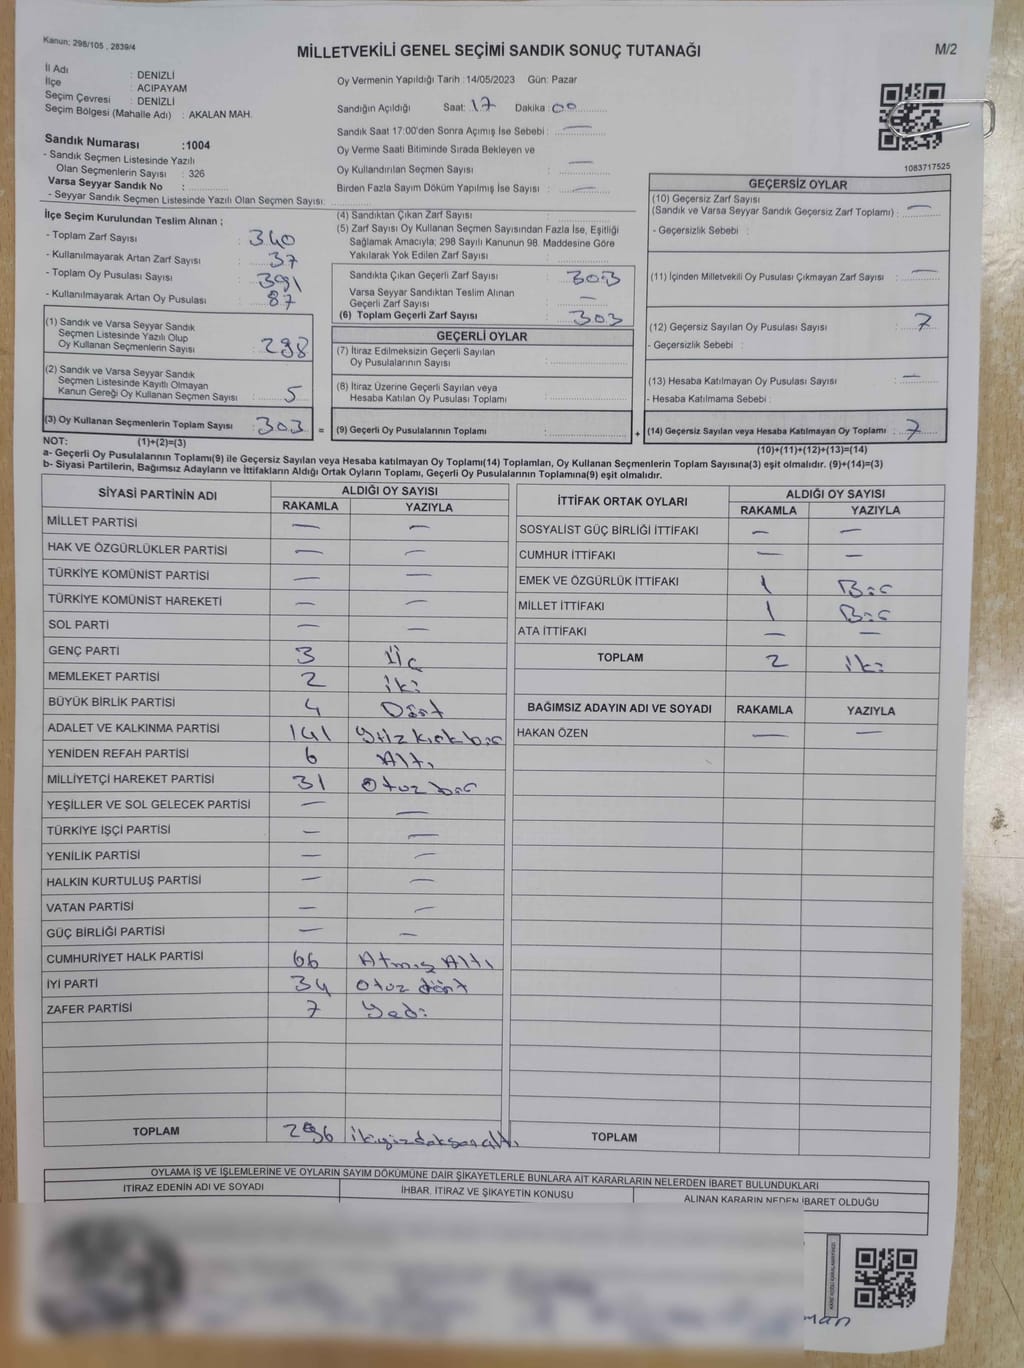 Kanun: 298/105 , 2839/4
MİLLETVEKİLİ GENEL SEÇİMİ SANDIK SONUÇ TUTANAĞI
M/2
İl Adı : DENİZLİ
İlçe : ACIPAYAM
Seçim Çevresi : DENİZLİ
Seçim Bölgesi (Mahalle Adı) : AKALAN MAH.
Sandık Numarası :1004
- Sandık Seçmen Listesinde Yazılı
Olan Seçmenlerin Sayısı : 326
Varsa Seyyar Sandık No :
- Seyyar Sandık Seçmen Listesinde Yazılı Olan Seçmen Sayısı:
Oy Vermenin Yapıldığı Tarih :14/05/2023 Gün: Pazar
Sandığın Açıldığı Saat: 17 Dakika : 00
Sandık Saat 17:00'den Sonra Açımış İse Sebebi : —
Oy Verme Saati Bitiminde Sırada Bekleyen ve
Oy Kullandırılan Seçmen Sayısı : —
Birden Fazla Sayım Döküm Yapılmış İse Sayısı : —
1083717525
İlçe Seçim Kurulundan Teslim Alınan ;
- Toplam Zarf Sayısı : 340
- Kullanılmayarak Artan Zarf Sayısı : 37
- Toplam Oy Pusulası Sayısı : 391
- Kullanılmayarak Artan Oy Pusulası : 87
(1) Sandık ve Varsa Seyyar Sandık
Seçmen Listesinde Yazılı Olup
Oy Kullanan Seçmenlerin Sayısı : 298
(2) Sandık ve Varsa Seyyar Sandık
Seçmen Listesinde Kayıtlı Olmayan
Kanun Gereği Oy Kullanan Seçmen Sayısı : 5
(3) Oy Kullanan Seçmenlerin Toplam Sayısı : 303 =
(4) Sandıktan Çıkan Zarf Sayısı :
(5) Zarf Sayısı Oy Kullanan Seçmen Sayısından Fazla İse, Eşitliği
Sağlamak Amacıyla; 298 Sayılı Kanunun 98. Maddesine Göre
Yakılarak Yok Edilen Zarf Sayısı :
Sandıkta Çıkan Geçerli Zarf Sayısı : 303
Varsa Seyyar Sandıktan Teslim Alınan
Geçerli Zarf Sayısı : —
(6) Toplam Geçerli Zarf Sayısı : 303
GEÇERLİ OYLAR
(7) İtiraz Edilmeksizin Geçerli Sayılan
Oy Pusulalarının Sayısı :
(8) İtiraz Üzerine Geçerli Sayılan veya
Hesaba Katılan Oy Pusulası Toplamı :
(9) Geçerli Oy Pusulalarının Toplamı : +
GEÇERSİZ OYLAR
(10) Geçersiz Zarf Sayısı
(Sandık ve Varsa Seyyar Sandık Geçersiz Zarf Toplamı) : —
- Geçersizlik Sebebi :
(11) İçinden Milletvekili Oy Pusulası Çıkmayan Zarf Sayısı : —
(12) Geçersiz Sayılan Oy Pusulası Sayısı : 7
- Geçersizlik Sebebi :
(13) Hesaba Katılmayan Oy Pusulası Sayısı : —
- Hesaba Katılmama Sebebi :
(14) Geçersiz Sayılan veya Hesaba Katılmayan Oy Toplamı : 7
NOT: (1)+(2)=(3) (10)+(11)+(12)+(13)=(14)
a- Geçerli Oy Pusulalarının Toplamı(9) ile Geçersiz Sayılan veya Hesaba katılmayan Oy Toplamı(14) Toplamları, Oy Kullanan Seçmenlerin Toplam Sayısına(3) eşit olmalıdır. (9)+(14)=(3)
b- Siyasi Partilerin, Bağımsız Adayların ve İttifakların Aldığı Ortak Oyların Toplamı, Geçerli Oy Pusulalarının Toplamına(9) eşit olmalıdır.
SİYASİ PARTİNİN ADI ALDIĞI OY SAYISI
RAKAMLA YAZIYLA
MİLLET PARTİSİ — —
HAK VE ÖZGÜRLÜKLER PARTİSİ — —
TÜRKİYE KOMÜNİST PARTİSİ — —
TÜRKİYE KOMÜNİST HAREKETİ — —
SOL PARTİ — —
GENÇ PARTİ 3 Üç
MEMLEKET PARTİSİ 2 iki
BÜYÜK BİRLİK PARTİSİ 4 Dört
ADALET VE KALKINMA PARTİSİ 141 Yüz kırk bir
YENİDEN REFAH PARTİSİ 6 Altı
MİLLİYETÇİ HAREKET PARTİSİ 31 Otuz bir
YEŞİLLER VE SOL GELECEK PARTİSİ — —
TÜRKİYE İŞÇİ PARTİSİ — —
YENİLİK PARTİSİ — —
HALKIN KURTULUŞ PARTİSİ — —
VATAN PARTİSİ — —
GÜÇ BİRLİĞİ PARTİSİ — —
CUMHURİYET HALK PARTİSİ 66 Atmış Altı
İYİ PARTİ 34 Otuz dört
ZAFER PARTİSİ 7 Yedi
TOPLAM 296 ikiyüzdoksanaltı
İTTİFAK ORTAK OYLARI ALDIĞI OY SAYISI
RAKAMLA YAZIYLA
SOSYALİST GÜÇ BİRLİĞİ İTTİFAKI — —
CUMHUR İTTİFAKI — —
EMEK VE ÖZGÜRLÜK İTTİFAKI 1 Bir
MİLLET İTTİFAKI 1 Bir
ATA İTTİFAKI — —
TOPLAM 2 iki
BAĞIMSIZ ADAYIN ADI VE SOYADI RAKAMLA YAZIYLA
HAKAN ÖZEN — —
TOPLAM
OYLAMA İŞ VE İŞLEMLERİNE VE OYLARIN SAYIM DÖKÜMÜNE DAİR ŞİKAYETLERLE BUNLARA AİT KARARLARIN NELERDEN İBARET BULUNDUKLARI
İTİRAZ EDENİN ADI VE SOYADI İHBAR, İTİRAZ VE ŞİKAYETİN KONUSU ALINAN KARARIN NEDEN İBARET OLDUĞU